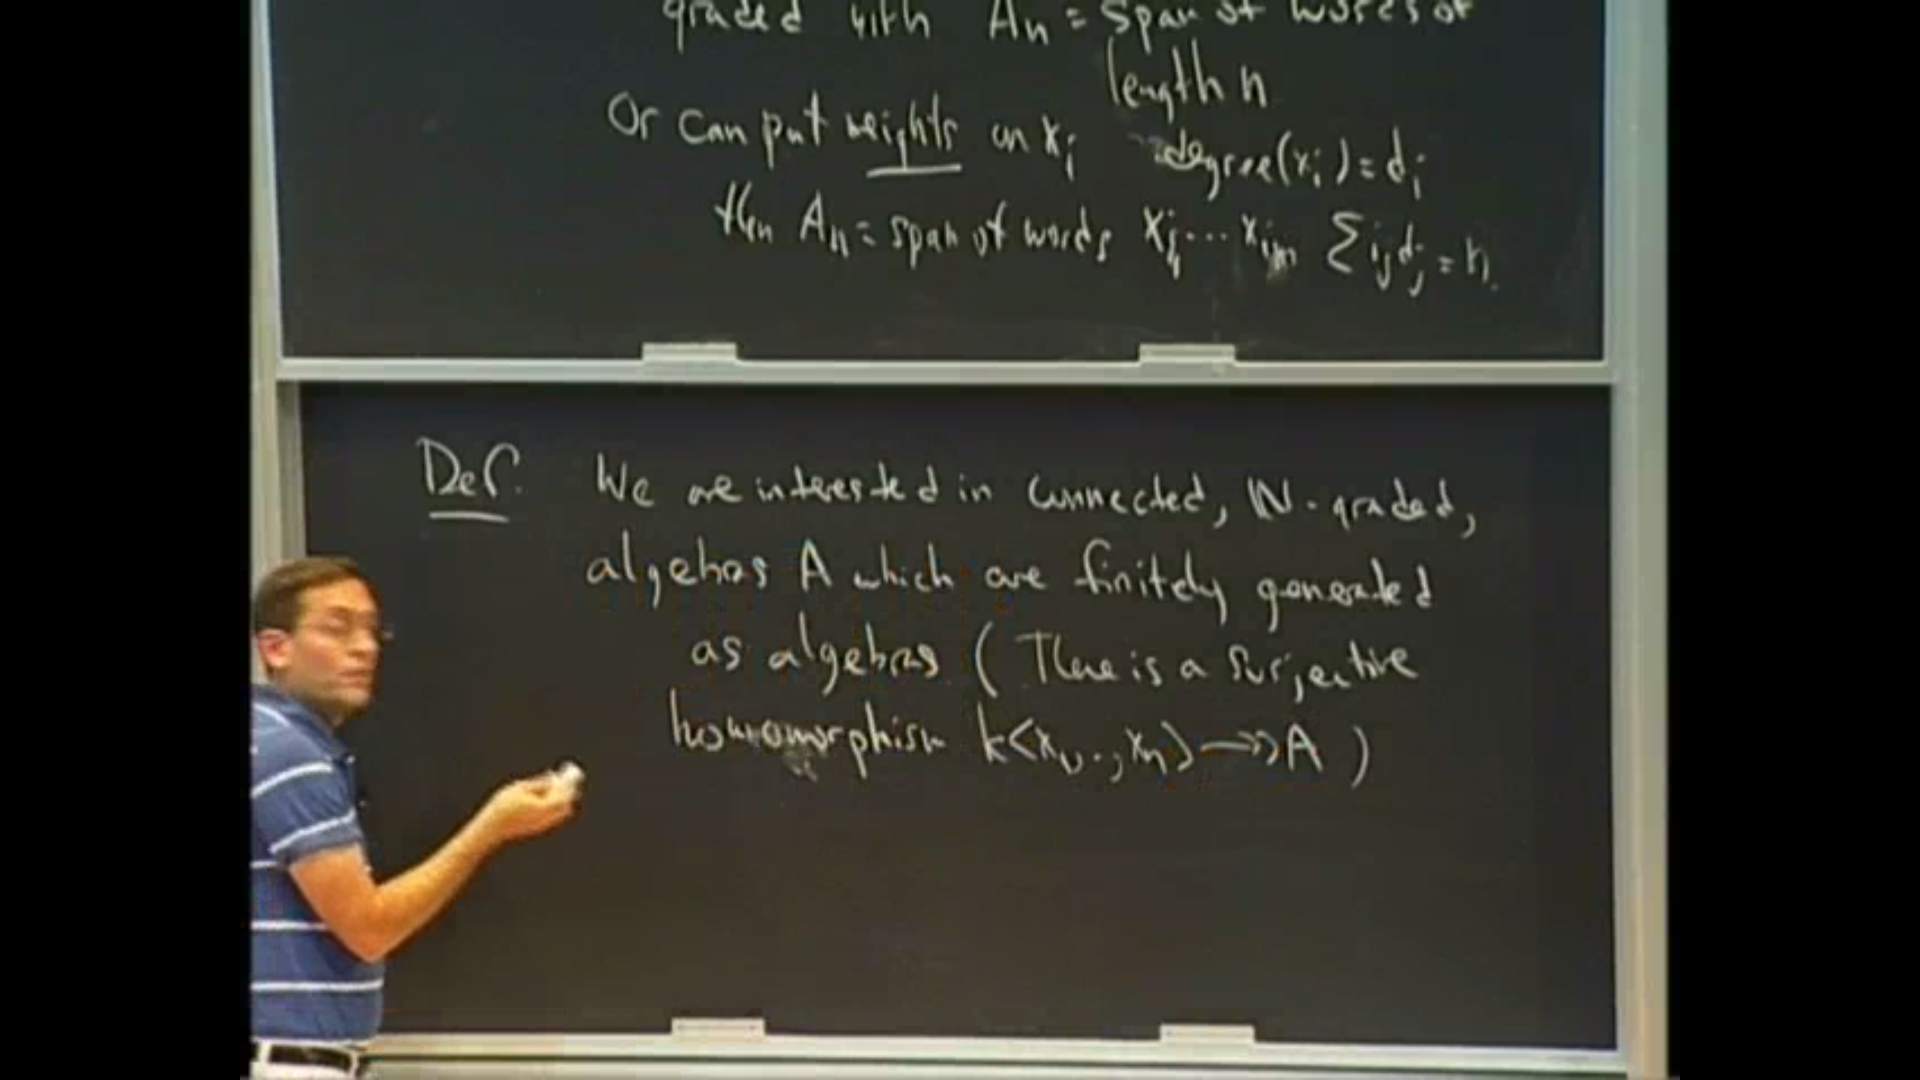 graded with Aₙ = span of words of
length n
Or can put weights on xᵢ degree(xᵢ) = dᵢ
then Aₙ = span of words xᵢ₁ ⋯ xᵢₘ Σ iⱼdⱼ = n.
Def. We are interested in connected, ℕ-graded,
algebras A which are finitely generated
as algebras (There is a surjective
homomorphism k<x₁, .., xₙ> ↠ A)